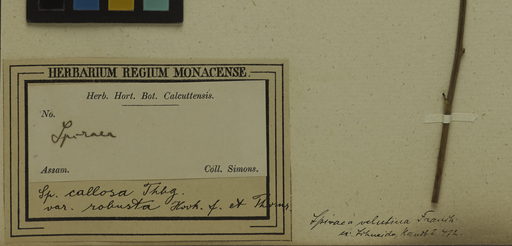 HERBARIUM REGIUM MONACENSE.
Herb. Hort. Bot. Calcuttensis.
No.
Spiraea
Assam. Coll. Simons.
Sp. callosa Thbg.
var. robusta Hook. f. et Thoms.
Spiraea velutina Franch.